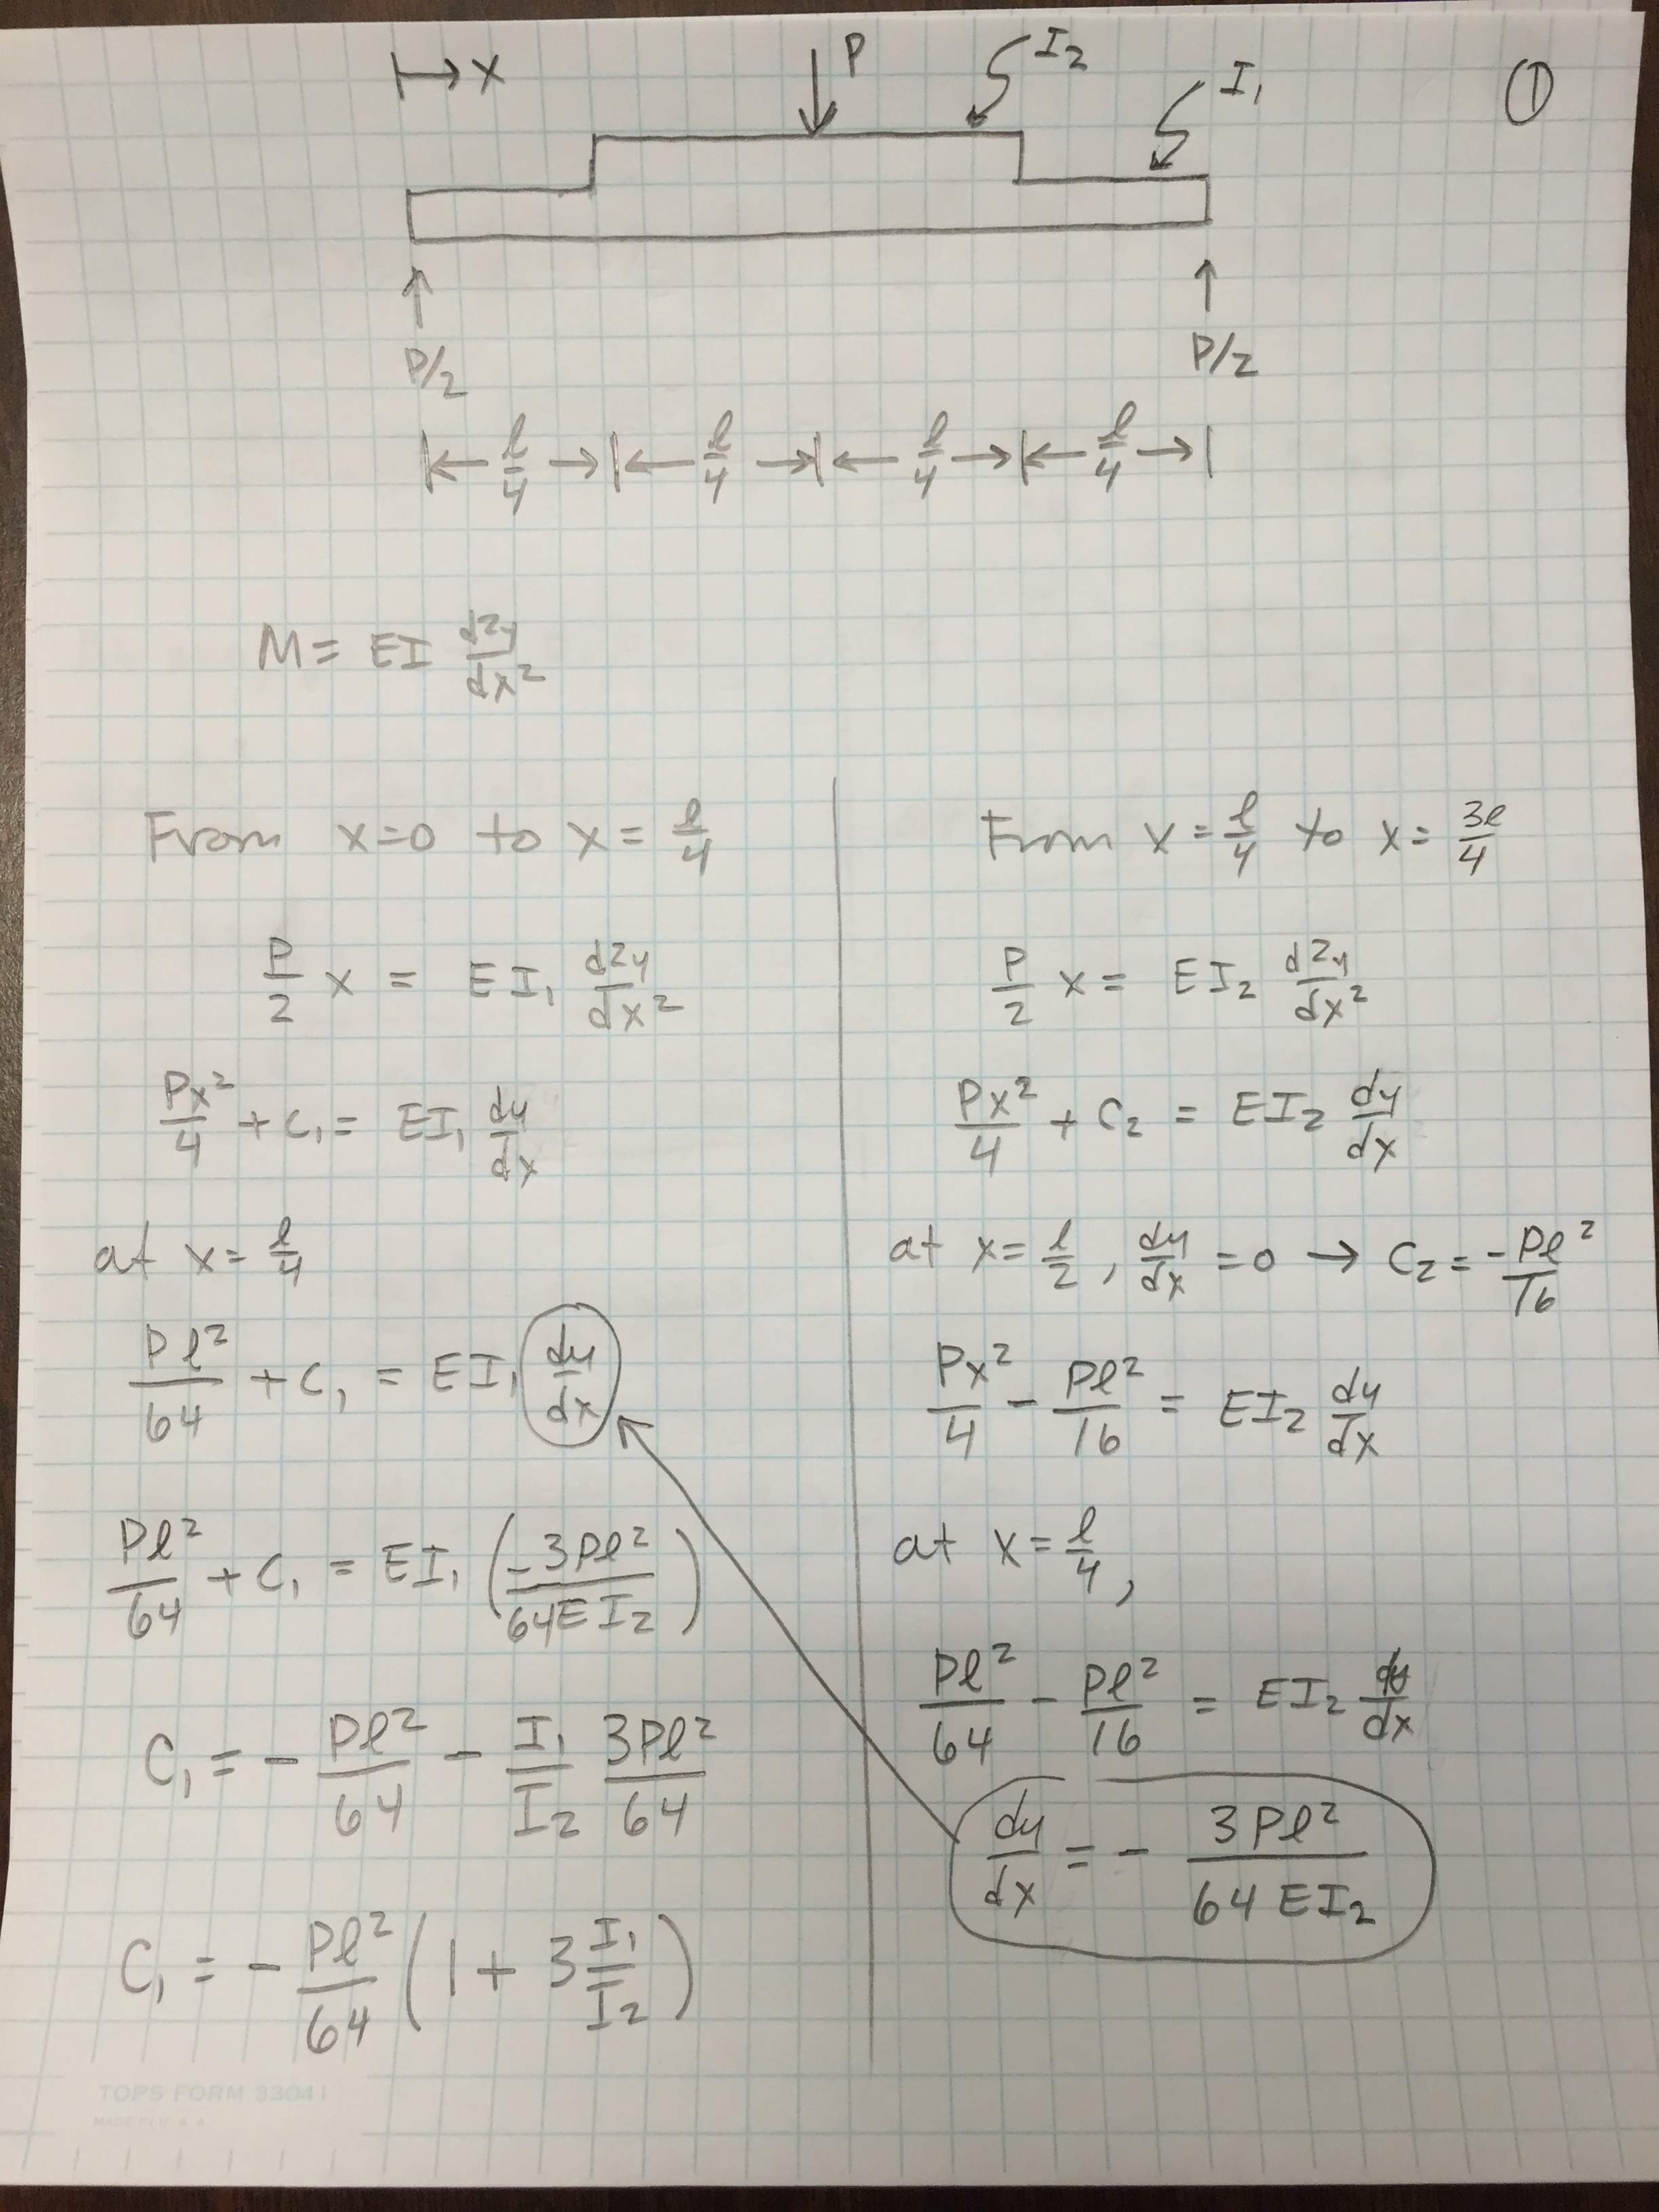 ↦ x
P
I₂
I₁
①
P/2
P/2
l/4 l/4 l/4 l/4
M = EI d²y/dx²
From x=0 to x = l/4
P/2 x = EI₁ d²y/dx²
Px²/4 + C₁ = EI₁ dy/dx
at x = l/4
Pl²/64 + C₁ = EI₁ dy/dx
Pl²/64 + C₁ = EI₁ (-3Pl²/64EI₂)
C₁ = - Pl²/64 - I₁/I₂ 3Pl²/64
C₁ = - Pl²/64 (1 + 3 I₁/I₂)
From x = l/4 to x = 3l/4
P/2 x = EI₂ d²y/dx²
Px²/4 + C₂ = EI₂ dy/dx
at x = l/2, dy/dx = 0 → C₂ = -Pl²/16
Px²/4 - Pl²/16 = EI₂ dy/dx
at x = l/4,
Pl²/64 - Pl²/16 = EI₂ dy/dx
dy/dx = - 3Pl²/64 EI₂
TOPS FORM 33041
MADE IN U.S.A.